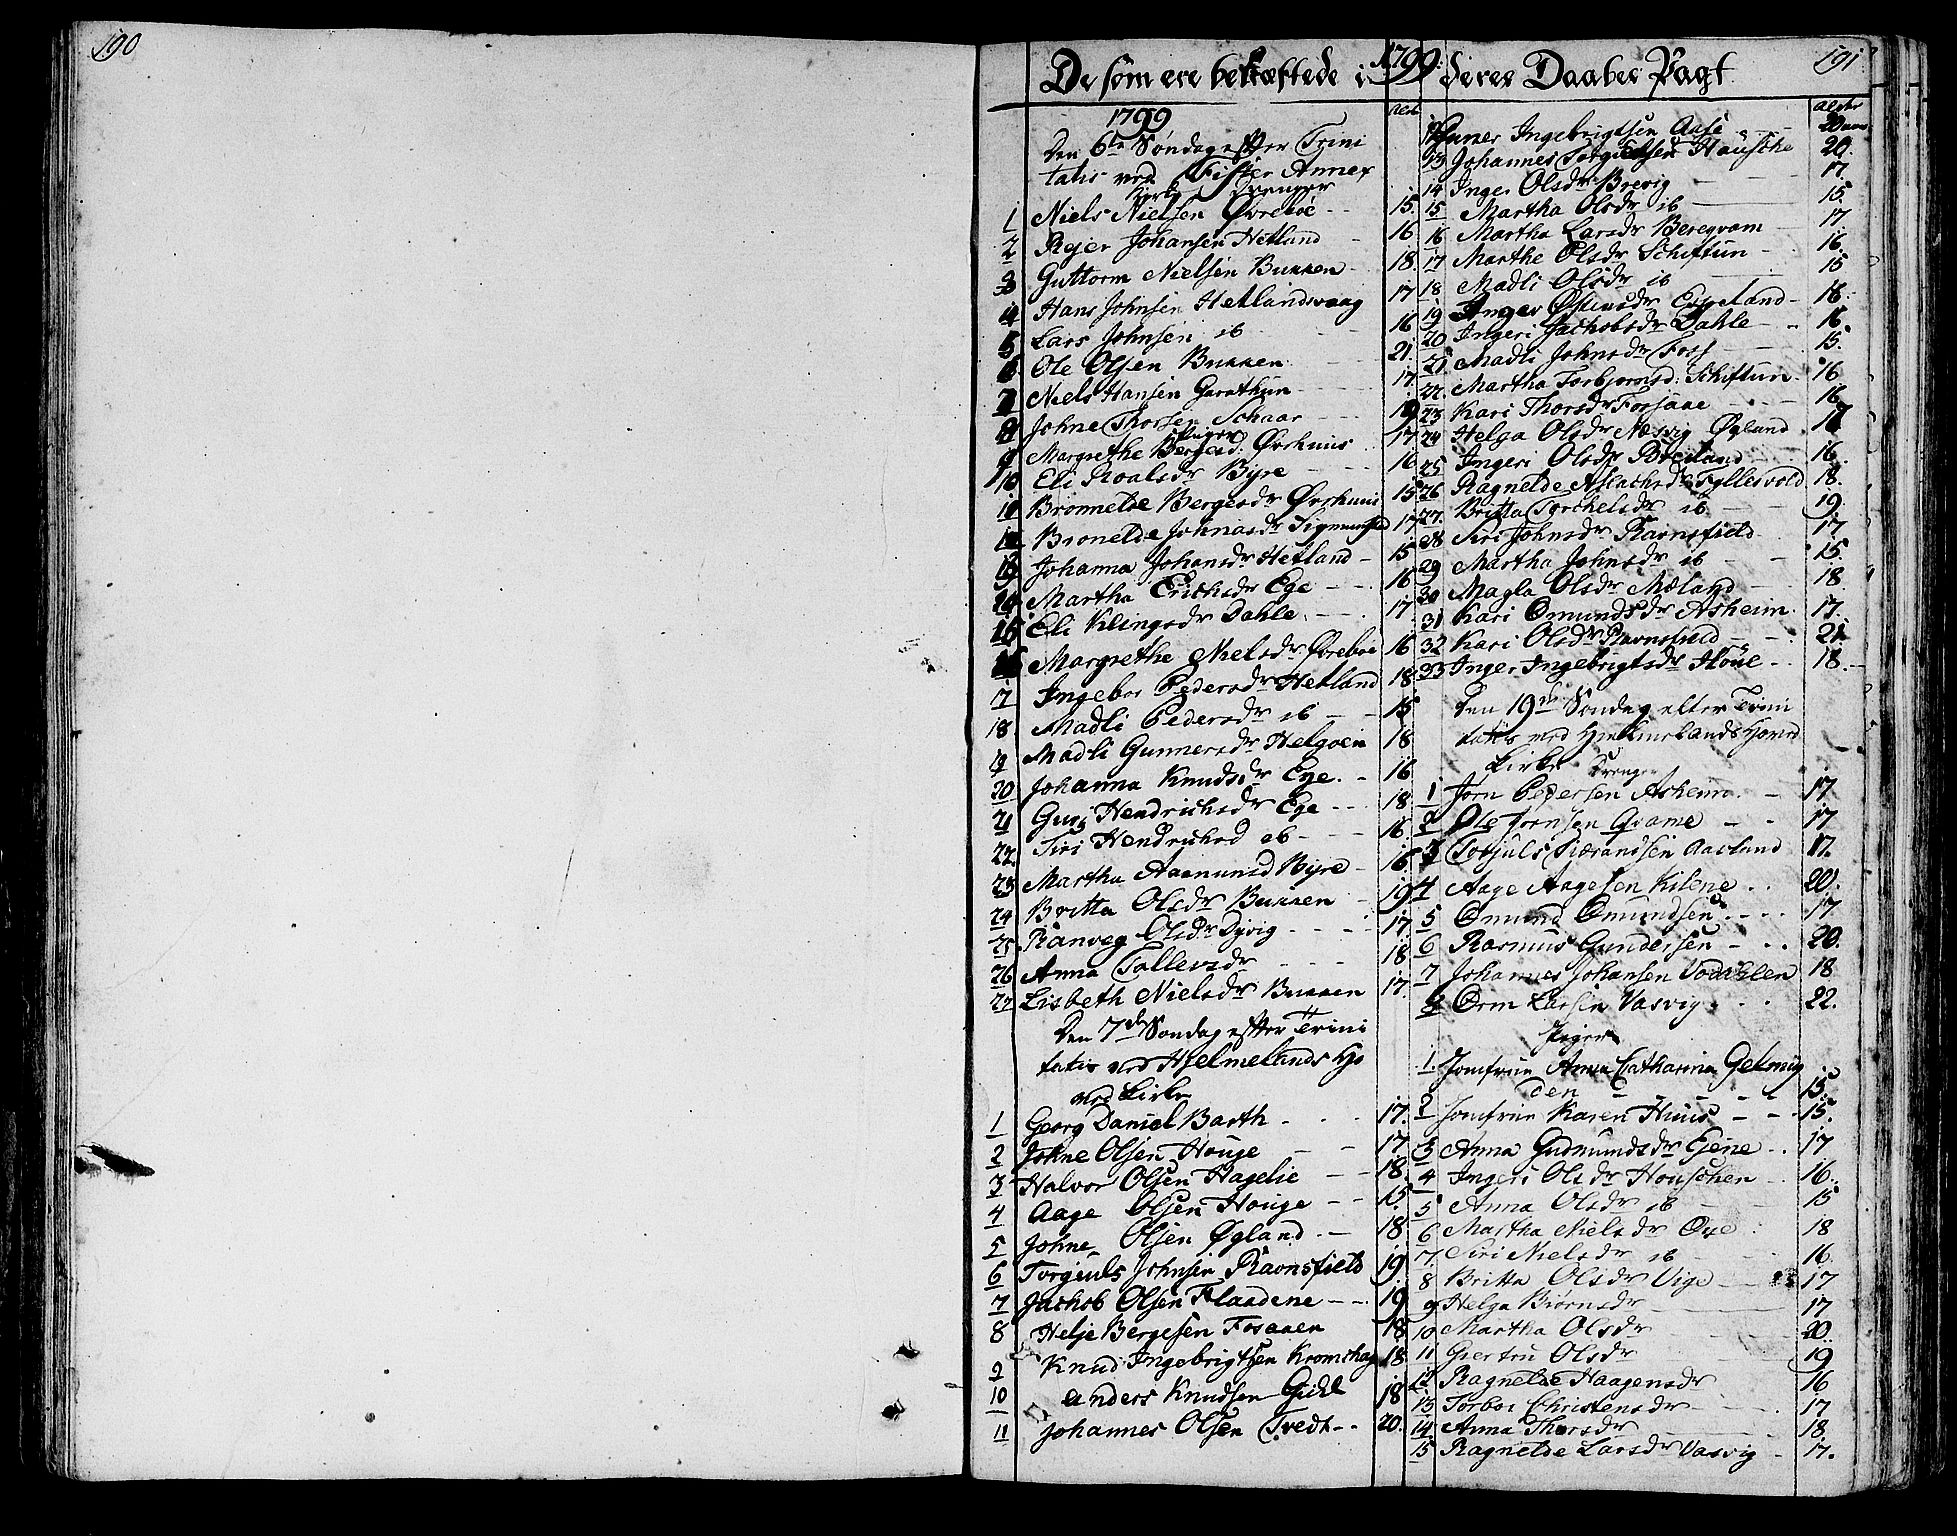 190
191
De som ere bekræftede i 1799 deres Daabes Pagt
1799
Alder
Den 6te Søndag efter Trini
tatis ved Fister Annex
Kirke Drenger
1 Niels Nielsen Øvrebøe 15.
2 Rejer Johansen Hetland 16
3 Guttorm Nielsen Bukken 18.
4 Hans Johnsen Hetlandsvaag 17
5 Lars Johnsen ib 16
6 Ole Olsen Bukken 21.
7 Niels Hansen Garathun 17.
8 Johne Thorsen Schaar 19
Piger
9 Margrethe Bergesd: Øvrhuus 17
10 Eli Roalsdr Byre 16
11 Bronnelde Bergesdr Øvrhuus 15
12 Bronelde Johnasdr Sigmunstad 17
13 Johanna Johansdr Hetland 15
14 Martha Erichsdr Ege 16
15 Eli Klingsdr Dahle 17
16 Margrethe Nielsdr Øvrebøe 16
17 Ingebor Pedersdr Hetland 18
18 Madli Pedersdr ib 15
19 Madli Gunnersdr Helgøen 18
20 Johanna Knudsdr Ege 16
21 Guri Hendrichsdr Ege 18
22 Siri Hendrichsd ib 16
23 Martha Aamunsd Byre 16
24 Britta Olsdr Bukken 19
25 Ranveg Olsdr Dyvig 17.
26 Anna Tollevsdr 18
27 Lisbeth Nielsdr Bukken 17.
Den 7de Søndag efter Trini
tatis ved Hjelmelands Ho
ved Kirke
1 Georg Daniel Barth 17.
2 Johne Olsen Houge 17.
3 Halvor Olsen Hagelie 18.
4 Aage Olsen Houge 15.
5 Johne Olsen Øgland 18
6 Torgeuls Johnsen Ravnsfield 19
7 Jachob Olsen Flaadene 19
8 Helje Bergesen Fosaaen 18
9 Knud Ingebrigtsen Kromshag 18
10 Anders Knudsen Giil 18
11 Johannes Olsen Tvedt 20.
Alder
12 Ingebrigtsen Aase 20 aar
13 Johannes Hauschen 20.
14 Inger Olsdr Brevig 17
15 Martha Olsdr ib 15.
16 Martha Larsdr Beregvam 17
17 Marthe Olsdr Schiftun 16
18 Madli Olsdr ib 15
19 Inger Østensdr Espeland 18.
20 Ingeri Jachobsdr Dahle 16.
21 Madli Johnsdr Foss 15.
22. Martha Torbjornsd: Schiftun 16
23 Kari Thorsdr Fosaae 16
24 Helga Olsdr Næsvig Øgland 18
25 Ingeri Olsdr 16.
26 Ragnelde Aslachsdr Tyllesvold 18.
27. Britta Torchelsdr ib 19
28 Siri Johnsdr Ravnsfield 17.
29 Martha Johnsdr ib 15.
30 Magla Olsdr Mæland 18
31 Kari Omundsdr Asheim 17.
32 Kari Olsdr Ravnsfield 21
33 Inger Ingebrigtsdr Houe 18.
Den 19de Søndag efter Trini
tatis ved Hjelmelands Hoved
Kirke Drenger
1 Jorn Pedersen Asheim 17.
2 Ole Jornsen Qvame 17
3 Torjuls Siærandsen Aarland 17.
4 Aage Aagesen Kilene 20.
5 Omund Omundsen 17
6 Rasmus Gundersen 20.
7 Johannes Johansen Vodahlen 18
8 Orm Larsen Vasvig 22.
Piger
1. Jomfrue Anna Catharina Gelmuy
den 15
2 Jomfrue Karen Huus 15
3 Anna Gudmundsdr Ejene 17
4 Ingeri Olsdr Houschen 16.
5 Anna Olsdr ib 15
6 Martha Nielsdr Øye 18
7. Siri Nielsdr ib 16.
8 Britta Olsdr Vige 17
9 Helga Biørnsdr 17
10 Martha Olsdr 20.
11 Giertru Olsdr 19
12 Ragnelde Haagensdr 16
13 Torbor Christensdr 17
14 Anna Thorsdr 18.
15 Ragnelde Larsdr Vasvig 17.